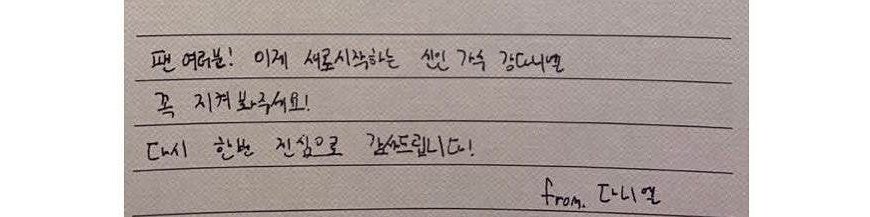 팬 여러분! 이제 새로시작하는 신인 가수 강다니엘
꼭 지켜봐주세요!
다시 한번 진심으로 감사드립니다!
from. 다니엘